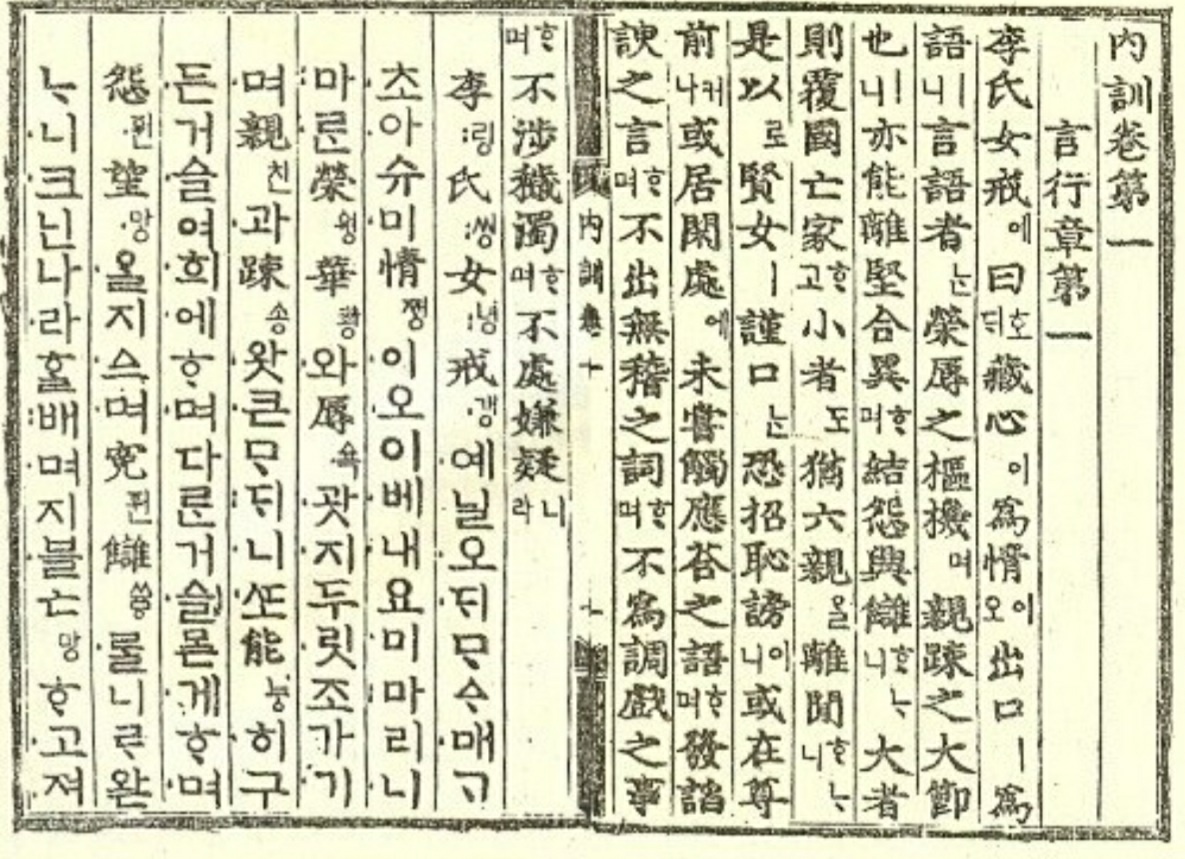 內訓卷第一
言行章第一
李氏女戒에曰호ᄃᆡ藏心이爲情이오出口ㅣ爲
語ㅣ니言語者ᄂᆞᆫ榮辱之樞機며親踈之大節
也ㅣ니亦能離堅合異ᄒᆞ며結怨興讎ᄒᆞᄂᆞ니大者
則覆國亡家ᄒᆞ고小者도猶六親을離間ᄒᆞᄂᆞ니
是以로賢女ㅣ謹口ᄂᆞᆫ恐招恥謗이니或在尊
前커나或居閑處에未嘗觸應答之語ᄒᆞ며發諂
諛之言ᄒᆞ며不出無稽之詞ᄒᆞ며不爲調戲之事
ᄒᆞ며不涉穢濁ᄒᆞ며不處嫌疑니라
內訓卷十
李링氏씽女녕戒갱예닐오ᄃᆡᄆᆞᅀᆞ매ᄀᆞ
초아슈미情쪙이오이베내요미마리니
마ᄅᆞᆫ榮웡華ᅘᅪᆼ와辱욕괏지두릿조가기
며親친과踈송왓큰ᄆᆞᄃᆡ니ᄯᅩ能능히구
든거슬여희에ᄒᆞ며다ᄅᆞᆫ거슬몯게ᄒᆞ며
怨ᅙᅯᆫ望망을지ᅀᅳ며寃ᅙᅯᆫ讎쓩를니ᄅᆞ완
ᄂᆞ니크닌나라ᄒᆞᆯ배며지블亡망ᄒᆞ고져